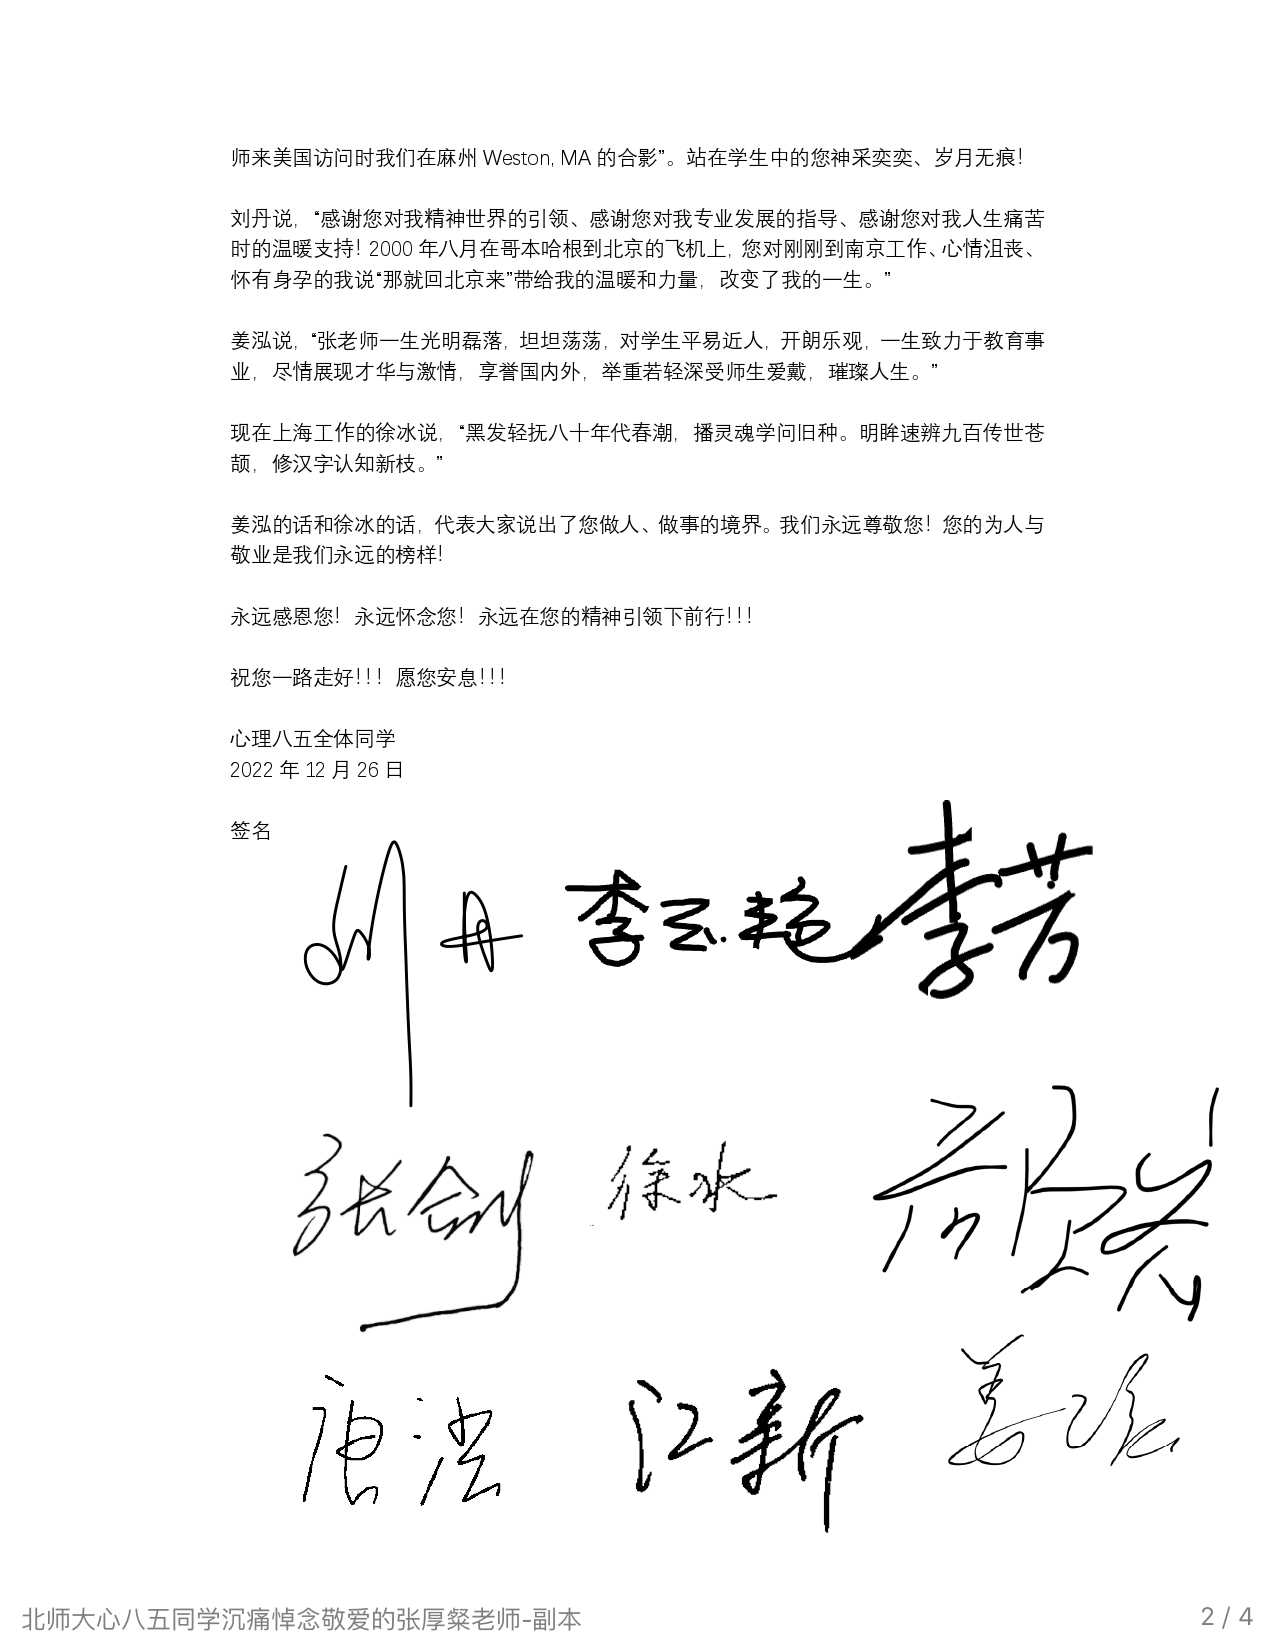 师来美国访问时我们在麻州 Weston, MA 的合影”。站在学生中的您神采奕奕、岁月无痕！
刘丹说，“感谢您对我精神世界的引领、感谢您对我专业发展的指导、感谢您对我人生痛苦
时的温暖支持！2000 年八月在哥本哈根到北京的飞机上，您对刚刚到南京工作、心情沮丧、
怀有身孕的我说“那就回北京来”带给我的温暖和力量，改变了我的一生。”
姜泓说，“张老师一生光明磊落，坦坦荡荡，对学生平易近人，开朗乐观，一生致力于教育事
业，尽情展现才华与激情，享誉国内外，举重若轻深受师生爱戴，璀璨人生。”
现在上海工作的徐冰说，“黑发轻抚八十年代春潮，播灵魂学问旧种。明眸速辨九百传世苍
颉，修汉字认知新枝。”
姜泓的话和徐冰的话，代表大家说出了您做人、做事的境界。我们永远尊敬您！您的为人与
敬业是我们永远的榜样！
永远感恩您！永远怀念您！永远在您的精神引领下前行！！！
祝您一路走好！！！愿您安息！！！
心理八五全体同学
2022 年 12 月 26 日
签名
刘丹 李玉艳 李芳
张剑 徐冰
唐洪 江新 姜泓
北师大心八五同学沉痛悼念敬爱的张厚粲老师-副本
2 / 4